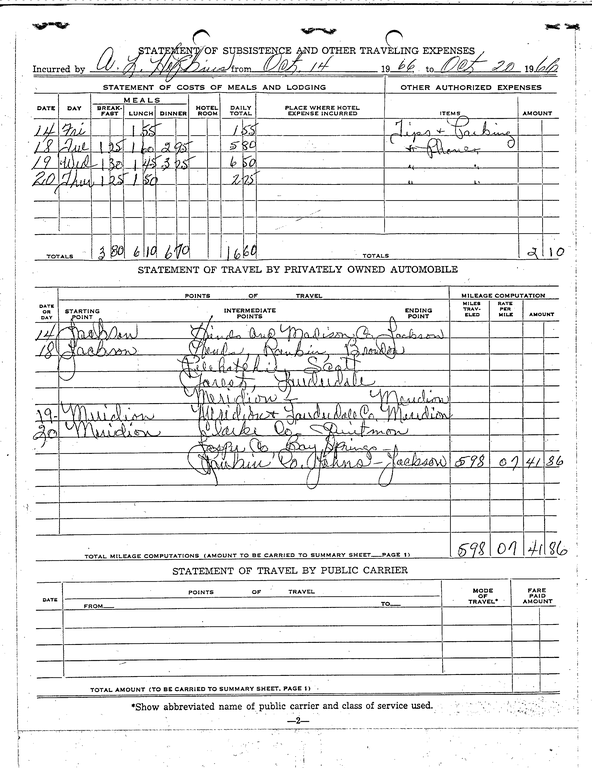 STATEMENT OF SUBSISTENCE AND OTHER TRAVELING EXPENSES
Incurred by A. L. Hopkins from Oct. 14 1966 to Oct 20 1966
STATEMENT OF COSTS OF MEALS AND LODGING OTHER AUTHORIZED EXPENSES
DATE DAY MEALS BREAK-FAST LUNCH DINNER HOTEL ROOM DAILY TOTAL PLACE WHERE HOTEL EXPENSE INCURRED ITEMS AMOUNT
14 Fri 1 55 1 55 Tips + Parking
18 Tue 1 25 1 60 2 95 5 80 + Phones
19 Wed 1 30 1 45 3 75 6 50 " "
20 Thur 1 25 1 50 2 75 " "
TOTALS 3 80 6 10 6 70 16 60 TOTALS 2 10
STATEMENT OF TRAVEL BY PRIVATELY OWNED AUTOMOBILE
DATE OR DAY POINTS OF TRAVEL MILEAGE COMPUTATION
STARTING POINT INTERMEDIATE POINTS ENDING POINT MILES TRAV-ELED RATE PER MILE AMOUNT
14 Jackson Hinds and Madison Co. Jackson
18 Jackson Hinds, Rankin, Brandon
Pelahatchie, Scott
Forest, Lauderdale
Meridian - Meridian
19- Meridian Meridian + Lauderdale Co. Meridian
20 Meridian Clarke Co. Quitman
Jasper Co. Bay Springs -
Rankin Co. Johns - Jackson 598 07 41 86
TOTAL MILEAGE COMPUTATIONS (AMOUNT TO BE CARRIED TO SUMMARY SHEET PAGE 1) 598 07 41 86
STATEMENT OF TRAVEL BY PUBLIC CARRIER
DATE POINTS OF TRAVEL MODE OF TRAVEL* FARE PAID AMOUNT
FROM TO
TOTAL AMOUNT (TO BE CARRIED TO SUMMARY SHEET, PAGE 1)
*Show abbreviated name of public carrier and class of service used.
—2—